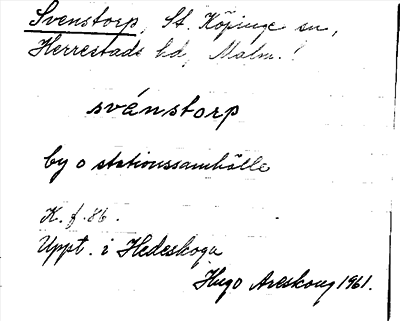 Svenstorp, St. Köpinge sn,
Herrestads hd, Malm. l
svénstorp
by o stationssamhälle
K. f. 86.
Uppt. i Hedeskoga
Hugo Areskoug 1961.